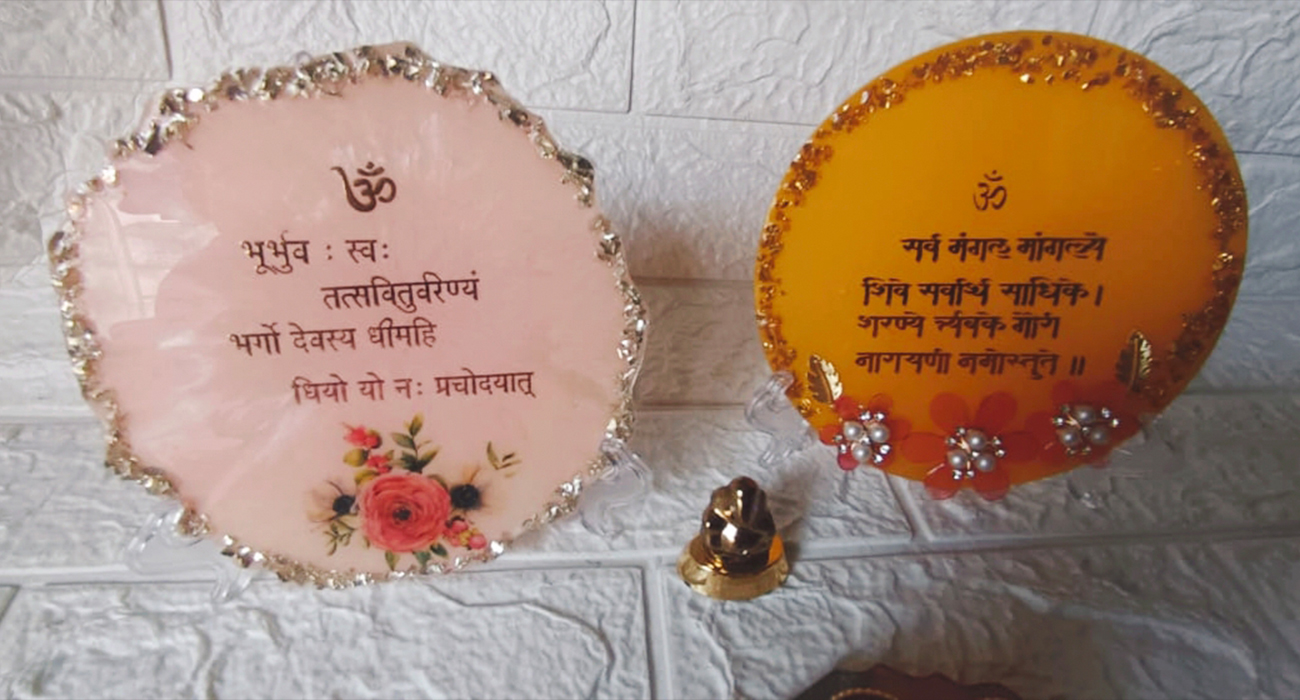 ॐ
भूर्भुव : स्वः
तत्सवितुर्वरेण्यं
भर्गो देवस्य धीमहि
धियो यो नः प्रचोदयात्
ॐ
सर्व मंगल मांगल्ये
शिवे सर्वार्थ साधिके।
शरण्ये त्र्यंबके गौरी
नारायणी नमोस्तुते ॥